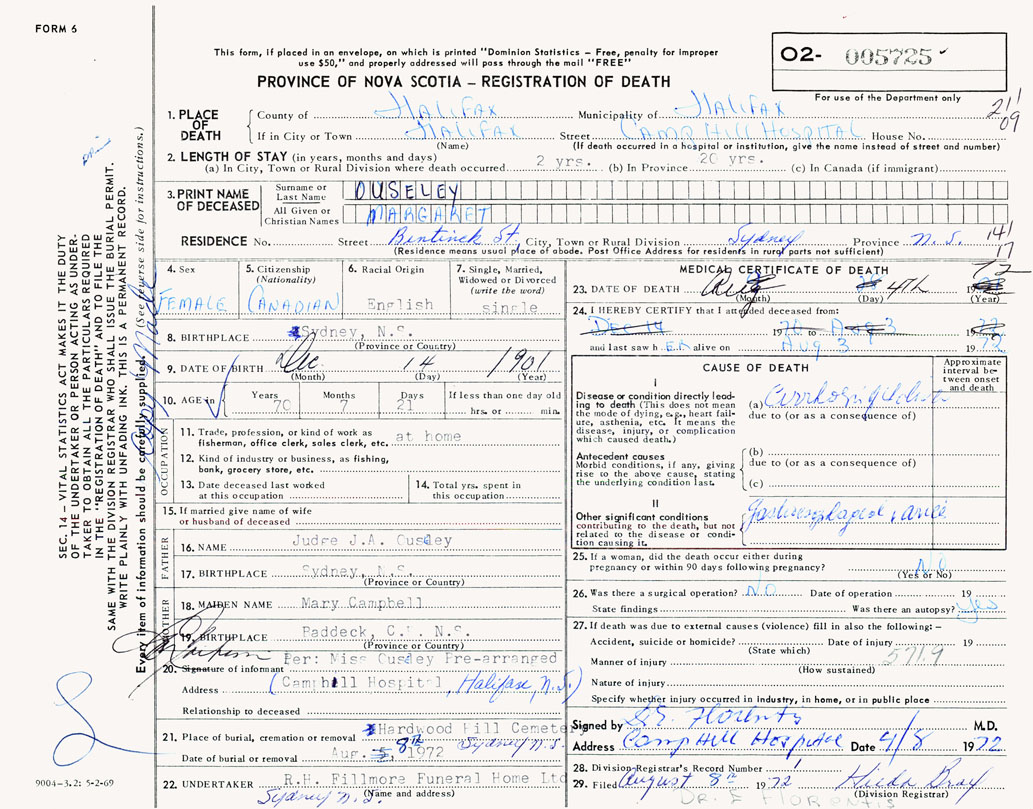 FORM 6
This form, if placed in an envelope, on which is printed "Dominion Statistics – Free, penalty for improper
use $50," and properly addressed will pass through the mail "FREE"
PROVINCE OF NOVA SCOTIA – REGISTRATION OF DEATH
O2- 005725
For use of the Department only
21/09
1. PLACE OF DEATH
County of HALIFAX Municipality of HALIFAX
If in City or Town HALIFAX Street CAMP HILL HOSPITAL House No.
(Name) (If death occurred in a hospital or institution, give the name instead of street and number)
2. LENGTH OF STAY (in years, months and days)
(a) In City, Town or Rural District where death occurred 2 yrs. (b) In Province 20 yrs. (c) In Canada (if immigrant)
3. PRINT NAME OF DECEASED
Surname or Last Name OUSELEY
All Given or Christian Names MARGARET
RESIDENCE No. Street Bentinck St. City, Town or Rural Division Sydney Province N.S.
(Residence means usual place of abode. Post Office Address for residents in rural parts not sufficient)
141
17
4. Sex FEMALE
5. Citizenship (Nationality) CANADIAN
6. Racial Origin English
7. Single, Married, Widowed or Divorced (write the word) single
8. BIRTHPLACE Sydney, N.S.
(Province or Country)
9. DATE OF BIRTH Dec 14 1901
(Month) (Day) (Year)
10. AGE in Years 70 Months 7 Days 21 If less than one day old hrs. or min.
OCCUPATION
11. Trade, profession, or kind of work as fisherman, office clerk, sales clerk, etc. at home
12. Kind of industry or business, as fishing, bank, grocery store, etc.
13. Date deceased last worked at this occupation
14. Total yrs. spent in this occupation
15. If married give name of wife or husband of deceased
FATHER
16. NAME Judge J.A. Ouseley
17. BIRTHPLACE Sydney, N.S.
(Province or Country)
MOTHER
18. MAIDEN NAME Mary Campbell
19. BIRTHPLACE Baddeck, C.B. N.S.
(Province or Country)
20. Signature of informant Per: Miss Ousley Pre-arranged
Address (Camphill Hospital, Halifax, N.S.)
Relationship to deceased
21. Place of burial, cremation or removal Hardwood Hill Cemetery
Sydney N.S.
Date of burial or removal Aug. 8th, 1972
22. UNDERTAKER R.H. Fillmore Funeral Home Ltd
(Name and address)
Sydney N.S.
MEDICAL CERTIFICATE OF DEATH
23. DATE OF DEATH Aug 4TH 19 72
(Month) (Day) (Year)
24. I HEREBY CERTIFY that I attended deceased from:
Dec 14 19 70 to Aug 3 19 72
and last saw h ER alive on Aug 3 19 72
CAUSE OF DEATH
Approximate interval between onset and death
I
Disease or condition directly leading to death (This does not mean the mode of dying, e.g., heart failure, asthenia, etc. It means the disease, injury, or complication which caused death.)
(a) Cirrhosis of liver
due to (or as a consequence of)
Antecedent causes
Morbid conditions, if any, giving rise to the above cause, stating the underlying condition last.
(b)
due to (or as a consequence of)
(c)
II
Other significant conditions
contributing to the death, but not related to the disease or condition causing it.
25. If a woman, did the death occur either during
pregnancy or within 90 days following pregnancy? No
(Yes or No)
26. Was there a surgical operation? NO Date of operation 19
State findings Was there an autopsy? Yes
27. If death was due to external causes (violence) fill in also the following: –
Accident, suicide or homicide? Date of injury 19
(State which)
5719
Manner of injury
(How sustained)
Nature of injury
Specify whether injury occurred in industry, in home, or in public place
Signed by S.E. Florents M.D.
Address Camp Hill Hospital Date 4/8 19 72
28. Division Registrar's Record Number
29. Filed August 8th 1972 Hilda Gray
(Division Registrar)
DR. E FLORENTS
SEC. 14 – VITAL STATISTICS ACT MAKES IT THE DUTY
OF THE UNDERTAKER OR PERSON ACTING AS UNDER-
TAKER TO OBTAIN ALL THE PARTICULARS REQUIRED
IN THE "REGISTRATION OF DEATH" AND TO FILE THE
SAME WITH THE DIVISION REGISTRAR WHO SHALL ISSUE THE BURIAL PERMIT.
WRITE PLAINLY WITH UNFADING INK. THIS IS A PERMANENT RECORD.
Every item of information should be carefully supplied. (See reverse side for instructions.)
9004-3.2: 5-2-69